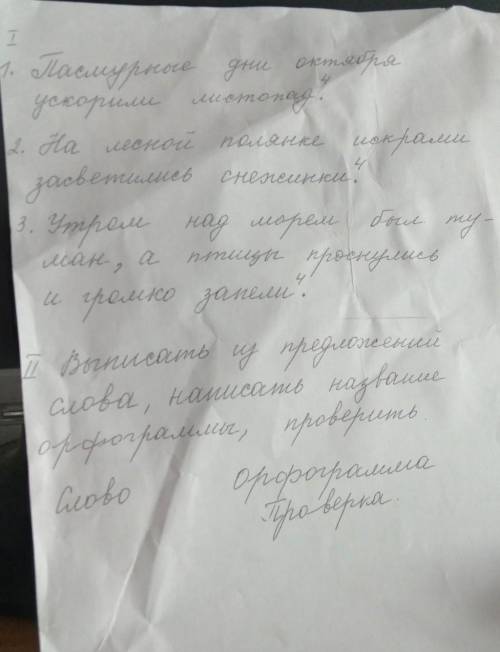 I
1. Пасмурные дни октября
ускорили листопад.⁴
2. На лесной полянке искрами
засветились снежинки.⁴
3. Утром над морем был ту-
ман, а птицы проснулись
и громко запели.⁴
II Выписать из предложений
слова, написать название
орфограммы, проверить.
Слово Орфограмма
Проверка.